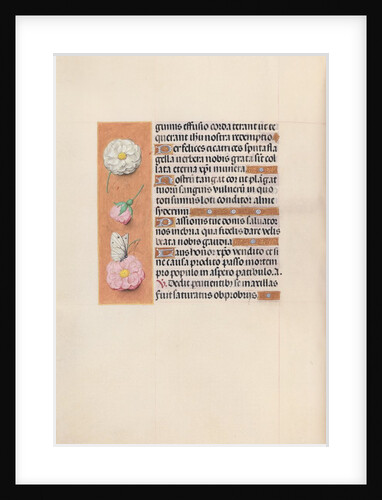 guinis effusio corda terant ut te
querant ihu nostra redemptio
Per felices cicatrices sputa fla
gella verbera nobis grata sit col
lata eterna xpi munera
Nostru tangat cor ut plagar
tuoru sanguis vulneru in quo
toti simus loti conditor alme
syderum
Passionis tue donis saluator
nos inebria qua fidelis dare velis
beata nobis gaudia
Laus honor xpo vendito et si
ne causa prodito passo mortem
pro populo in aspero patibulo. A.
V. Dedit percutienti se maxillas
Fuit saturatus obprobriis